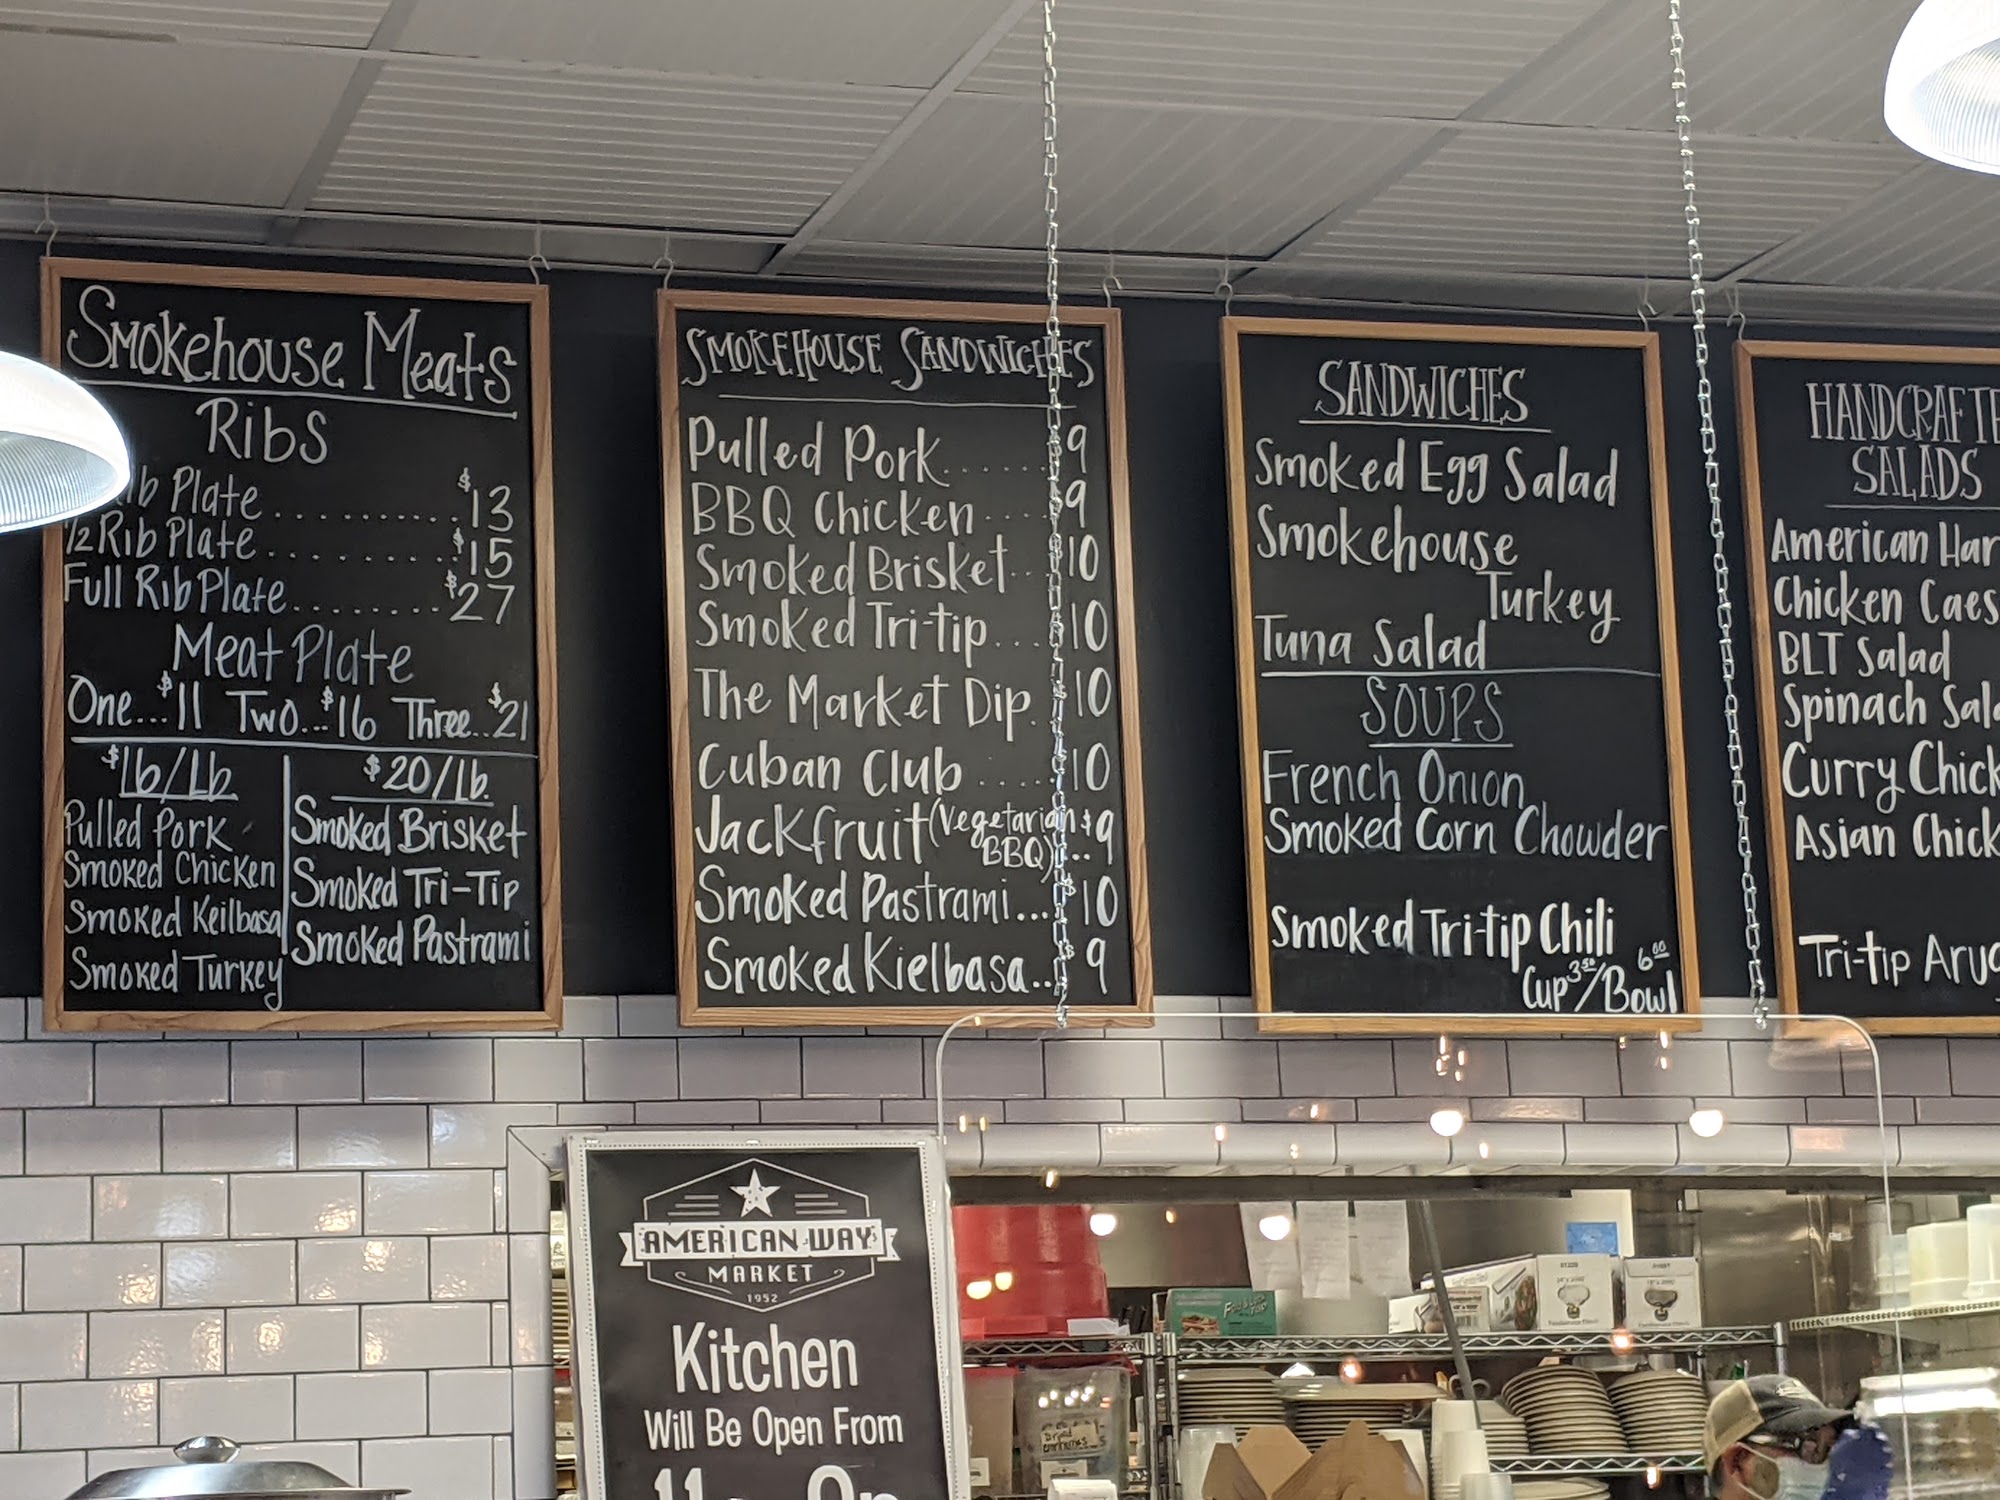 Smokehouse Meats
Ribs
Plate..........$13
1/2 Rib Plate..........$15
Full Rib Plate........$27
Meat Plate
One...$11 Two...$16 Three..$21
$16/Lb
Pulled Pork
Smoked Chicken
Smoked Keilbasa
Smoked Turkey
$20/Lb.
Smoked Brisket
Smoked Tri-Tip
Smoked Pastrami
SMOKEHOUSE SANDWICHES
Pulled Pork......$9
BBQ Chicken....$9
Smoked Brisket..$10
Smoked Tri-tip...$10
The Market Dip.$10
Cuban Club....$10
Jackfruit (Vegetarian $9
BBQ)..
Smoked Pastrami...$10
Smoked Kielbasa..$9
SANDWICHES
Smoked Egg Salad
Smokehouse
Turkey
Tuna Salad
SOUPS
French Onion
Smoked Corn Chowder
Smoked Tri-tip Chili
Cup 3.50/Bowl 6.00
HANDCRAFTE
SALADS
American Har
Chicken Caes
BLT Salad
Spinach Sala
Curry Chick
Asian Chick
Tri-tip Arug
AMERICAN WAY
MARKET
1952
Kitchen
Will Be Open From